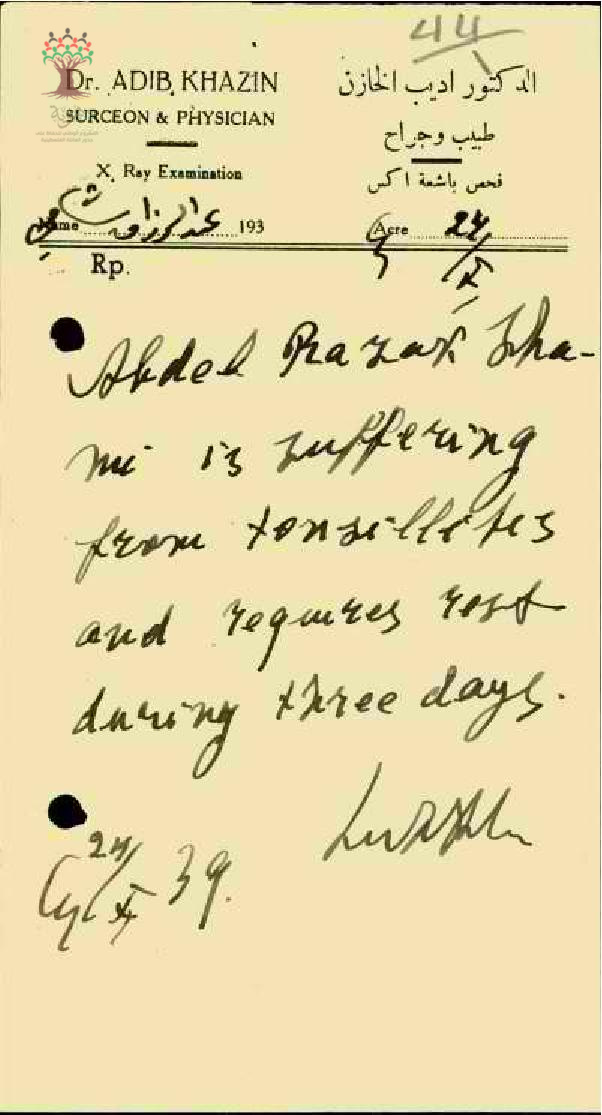 44
Dr. ADIB KHAZIN
SURGEON & PHYSICIAN
X. Ray Examination
الدكتور اديب الخازن
طبيب وجراح
فحص باشعة اكس
Name عبد الرزاق 193
Acre 24/X
Rp.
Abdel Razak Sha-
mi is suffering
from tonsillites
and requires rest
during three days.
24/X 39.